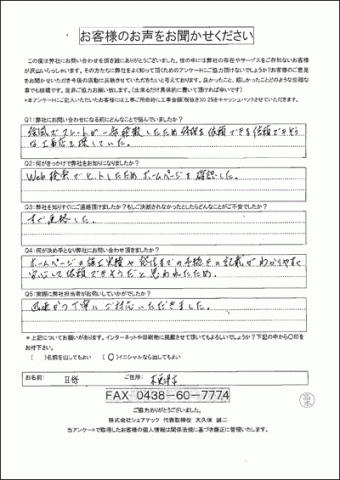 お客様のお声をお聞かせください
この度は弊社にお問い合わせを頂き誠にありがとうございました。世の中には弊社の存在やサービスをご存知ないお客様
が沢山いらっしゃいます。その方たちに弊社をよく知って頂くためのアンケートにご協力頂けないでしょうか?お客様のご意見
をお聞かせいただき今後の活動に反映させていただきたいと考えております。良かったこと、嬉しかったことどのような些細な
事でも結構です。是非ご協力お願い致します。(出来るだけ具体的に書いて頂ければ幸いです)
*本アンケートにご記入いただいたお客様には工事ご用命時に工事金額(税抜き)の2%をキャッシュバックさせていただきます。
Q1:弊社にお問い合わせになる前にどんなことで悩んでいましたか?
強風でスレートが一部破損したため修理を依頼できる信頼できそう
な工事店を探していた。
Q2:何がきっかけで弊社をお知りになりましたか?
Web検索でヒットしたためホームページを確認した。
Q3:弊社を知りすぐにご連絡頂けますか?もしご決断されなかったとしたらどんなことがご不安でしたか?
すぐ連絡した。
Q4:何が決め手となり弊社にお問い合わせ頂きましたか?
ホームページの施工実績や発注までの手順などの記載がわかりやすく
安心して依頼できそうだと思われたため。
Q5:実際に弊社担当者がお伺いしていかがでしたか?
迅速かつ丁寧にご対応いただきました。
*上記についてお願いがあります。インターネットや印刷物に掲載させて頂いてもよろしいでしょうか?下記の中から〇印を
お付け下さい。
( )名前を出してもよい (○)イニシャルなら出してもよい
お名前: II様 ご住所: 木更津市
FAX 0438-60-7774
ご協力ありがとうございました。
株式会社シェアテック 代表取締役 大久保 誠二
当アンケートで取得したお客様の個人情報は関係法規に基づき厳正に管理いたします。